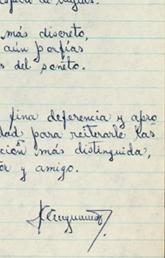 más discreto,
aún porfías
s del soneto.
fina deferencia y apro
dad para reiterarle las
ción más distinguida,
or y amigo.